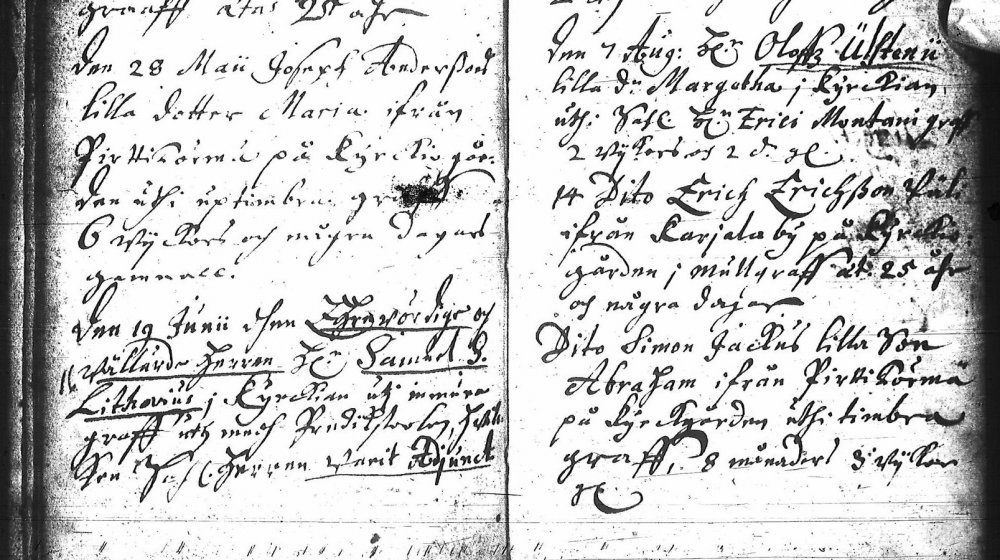 graaff ætas 25 åhr
Den 28 Maii Joseph Anderßons
lilla dotter Maria ifrån
Pirttikörmä på Kyrckio går-
den uthi uptimbra
6 wyckors och några dagars
gammall.
Den 19 Junii then Ehrewördige och
wällärde Herren Hr Samuel
Lithovius j Kyrckian uti inmura
graff uth medh Predikstoolen,
ken Sahl. Herren varit Adjunct
Den 7 Aug: Hr Oloffz Ulstenii
lilla dr Margetha j Kyrckian
uthi Sahl Hr Erici Montani graff
2 wykors och 2 d. gl.
14 Dito Erich Erichßon
ifrån Karjala by på Kyrckio
gården j mullgraff æt: 25 åhr
och några dagar
Dito Simon Jackus lilla Son
Abraham ifrån Pirttikörmä
på Kyrckgården uthi timbra
graff, 8 månaders 3 wykor
gl